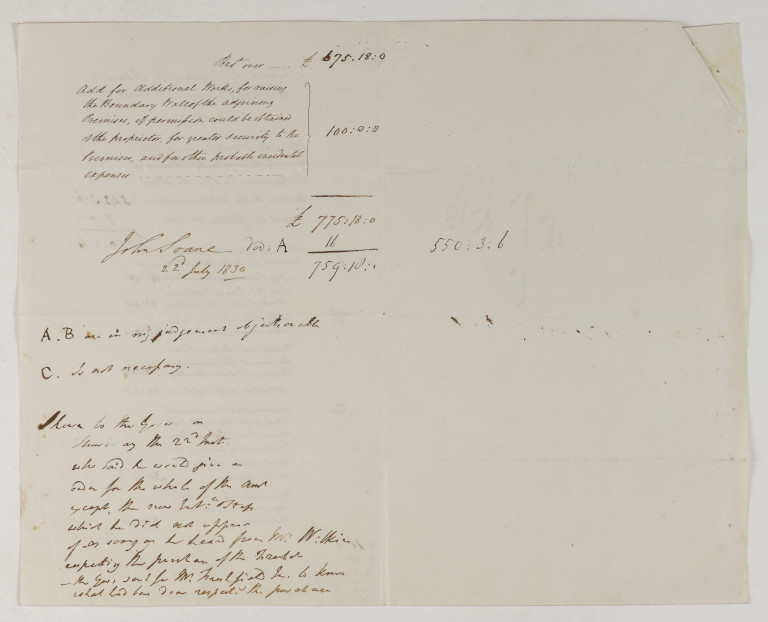 Brt over ..... £ 675.18:0
Add for Additional Works, for raising
the Boundary Wall of the adjoining
Premises, if permission could be obtained
of the proprietor, for greater security to the
Premises, and for other probable incidental
expenses ....................
100:0:0
£ 775:18:0
John Soane Ded: A 16
22d July 1830
759:18:.
550:3:6
A.B are in my judgement objectionable
C. Is not necessary.
Shewn to the Govr on
the 22d Inst.
who said he would give an
order for the whole of the Amt
except, the new Steps
which he did not approve
of as soon as he heard from Mr. Wilkins
respecting the purchase of the Freehold
- the Govr sent for Mr. Freshfield Jr. to know
what had been done respectg the purchase